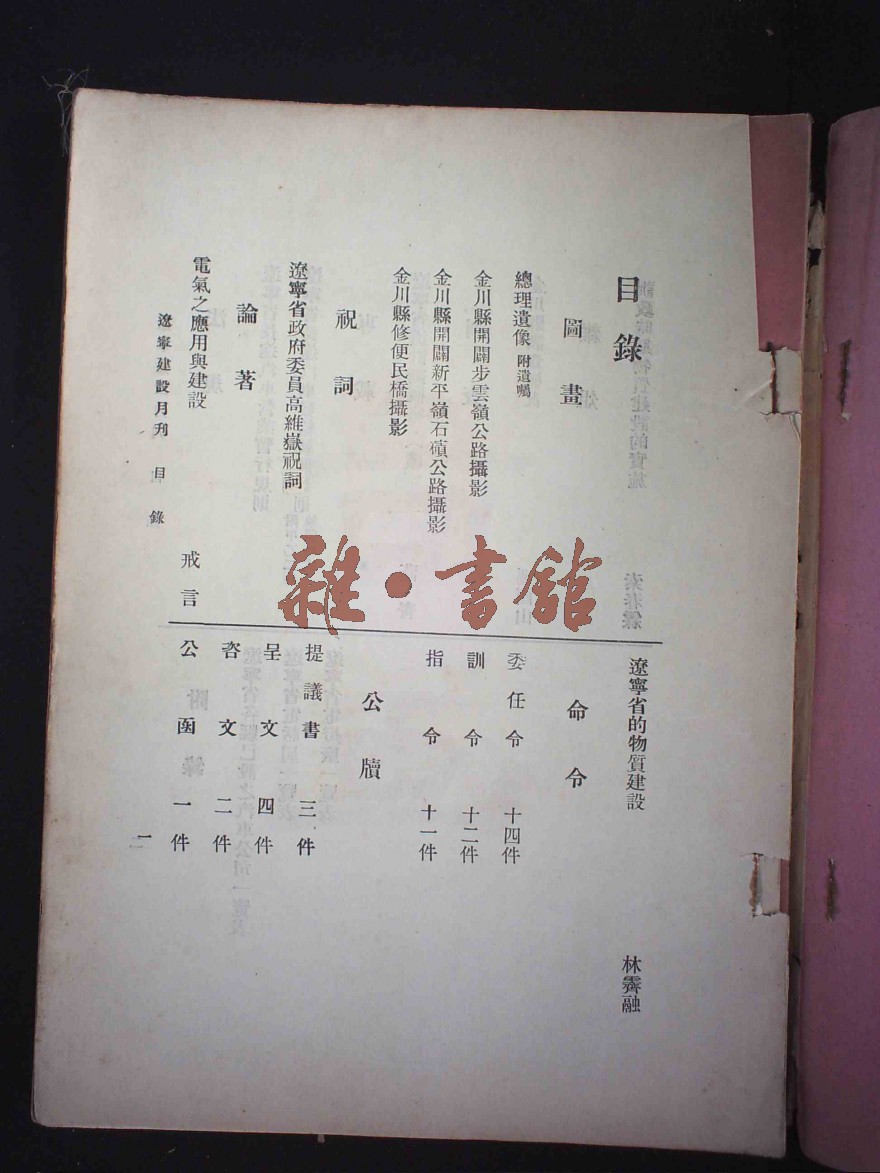 目錄
圖畫
總理遺像 附遺囑
金川縣開闢步雲嶺公路攝影
金川縣開闢新平嶺石磧公路攝影
金川縣修便民橋攝影
祝詞
遼寧省政府委員高維嶽祝詞
論著
電氣之應用與建設 戒言
遼寧建設月刊 目錄
遼寧省的物質建設 林霽融
命令
委任令 十四件
訓令 十二件
指令 十一件
公牘
提議書 三件
呈文 四件
咨文 二件
公函 一件
一
雜·書館